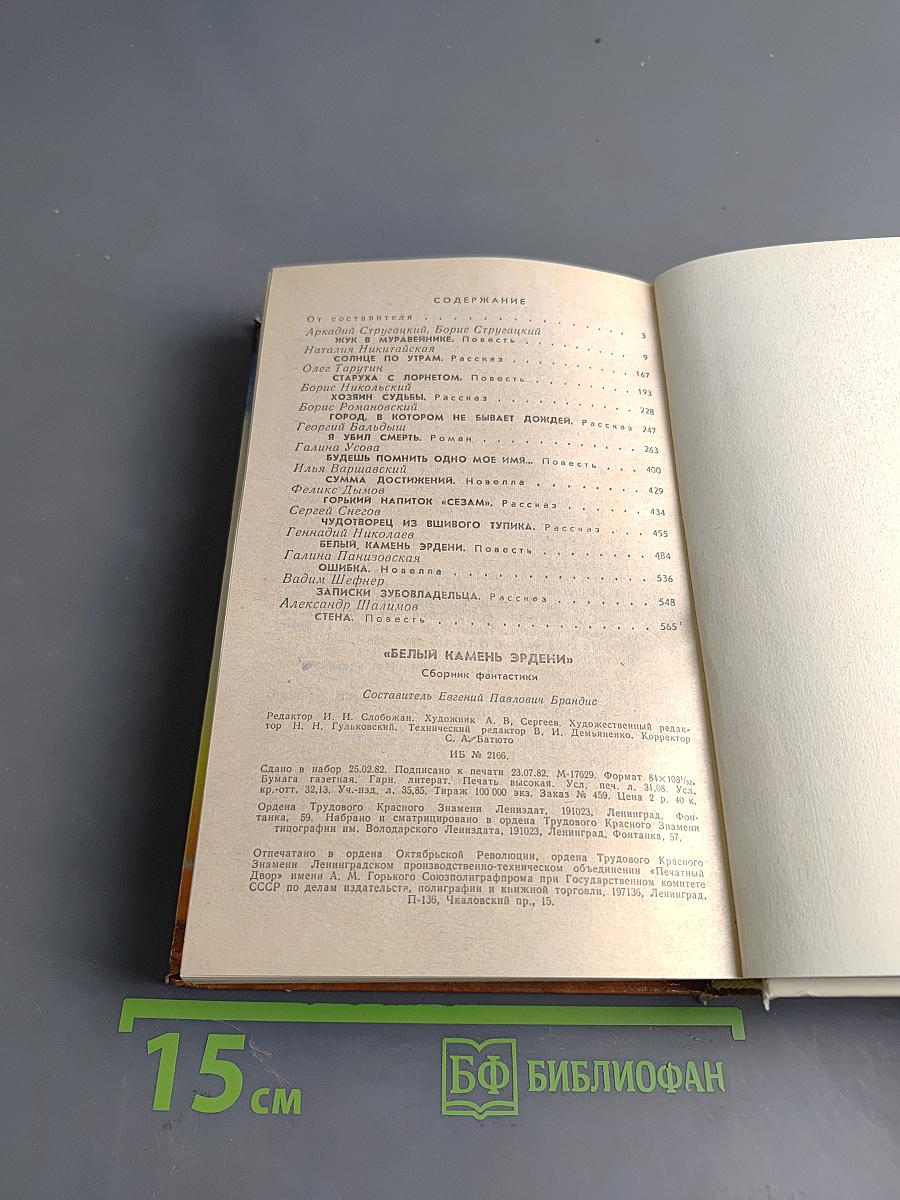 СОДЕРЖАНИЕ
От составителя . . . . . . . . . . . . . . 3
Аркадий Стругацкий, Борис Стругацкий
ЖУК В МУРАВЕЙНИКЕ. Повесть . . . . . . . 9
Наталия Никитайская
СОЛНЦЕ ПО УТРАМ. Рассказ . . . . . . . . 167
Олег Тарутин
СТАРУХА С ЛОРНЕТОМ. Повесть . . . . . . . 193
Борис Никольский
ХОЗЯИН СУДЬБЫ. Рассказ . . . . . . . . . 228
Борис Романовский
ГОРОД, В КОТОРОМ НЕ БЫВАЕТ ДОЖДЕЙ. Рассказ 247
Георгий Бальдыш
Я УБИЛ СМЕРТЬ. Роман . . . . . . . . . . 263
Галина Усова
БУДЕШЬ ПОМНИТЬ ОДНО МОЕ ИМЯ... Повесть . . . 400
Илья Варшавский
СУММА ДОСТИЖЕНИЙ. Новелла . . . . . . . . 429
Феликс Дымов
ГОРЬКИЙ НАПИТОК «СЕЗАМ». Рассказ . . . . . . 434
Сергей Снегов
ЧУДОТВОРЕЦ ИЗ ВШИВОГО ТУПИКА. Рассказ . . . 455
Геннадий Николаев
БЕЛЫЙ КАМЕНЬ ЭРДЕНИ. Повесть . . . . . . . 484
Галина Панизовская
ОШИБКА. Новелла . . . . . . . . . . . . . 536
Вадим Шефнер
ЗАПИСКИ ЗУБОВЛАДЕЛЬЦА. Рассказ . . . . . . . 548
Александр Шалимов
СТЕНА. Повесть . . . . . . . . . . . . . . 565
«БЕЛЫЙ КАМЕНЬ ЭРДЕНИ»
Сборник фантастики
Составитель Евгений Павлович Брандис
Редактор И. И. Слобожан. Художник А. В. Сергеев. Художественный редак-
тор Н. Н. Гульковский. Технический редактор В. И. Демьяненко. Корректор
С. А. Батюто
ИБ № 2166.
Сдано в набор 25.02.82. Подписано к печати 23.07.82. М-17629. Формат 84×108¹/₃₂.
Бумага газетная. Гарн. литерат. Печать высокая. Усл. печ. л. 31,08. Усл.
кр.-отт. 32,13. Уч.-изд. л. 35,85. Тираж 100 000 экз. Заказ № 459. Цена 2 р. 40 к.
Ордена Трудового Красного Знамени Лениздат, 191023, Ленинград, Фон-
танка, 59. Набрано и сматрицировано в ордена Трудового Красного Знамени
типографии им. Володарского Лениздата, 191023, Ленинград, Фонтанка, 57.
Отпечатано в ордена Октябрьской Революции, ордена Трудового Красного
Знамени Ленинградском производственно-техническом объединении «Печатный
Двор» имени А. М. Горького Союзполиграфпрома при Государственном комитете
СССР по делам издательств, полиграфии и книжной торговли, 197136, Ленинград,
П-136, Чкаловский пр., 15.
15 см
БФ БИБЛИОФАН